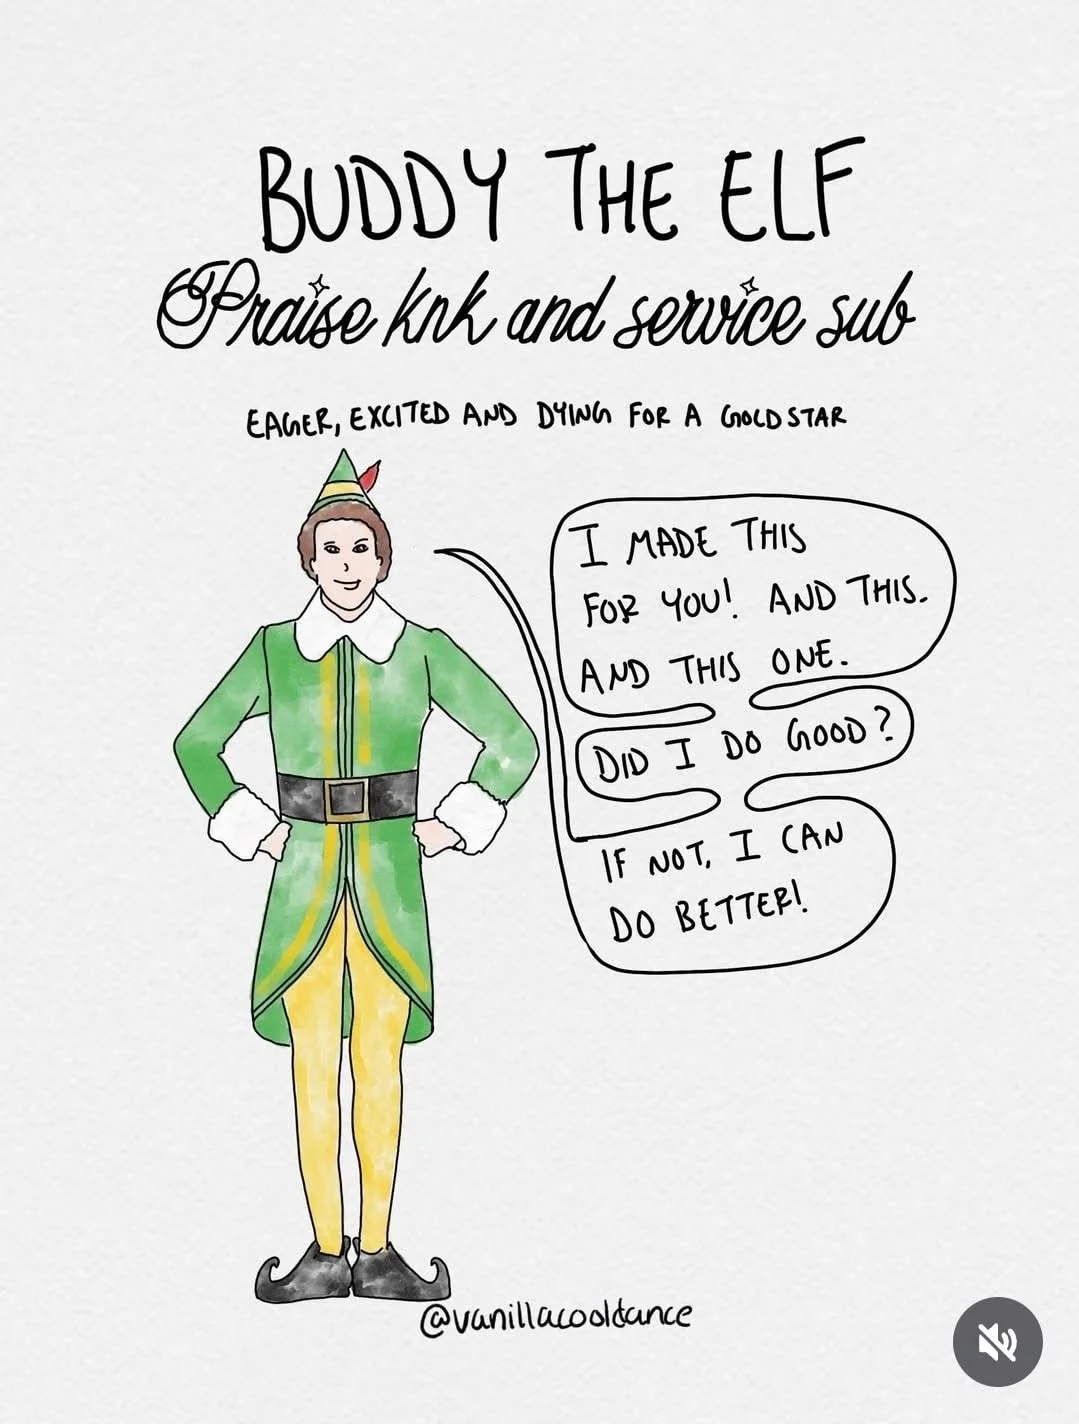 BUDDY THE ELF
Praise knk and service sub
EAGER, EXCITED AND DYING FOR A GOLD STAR
I MADE THIS
FOR YOU! AND THIS.
AND THIS ONE.
DID I DO GOOD?
IF NOT, I CAN
DO BETTER!
@vanillacooldance